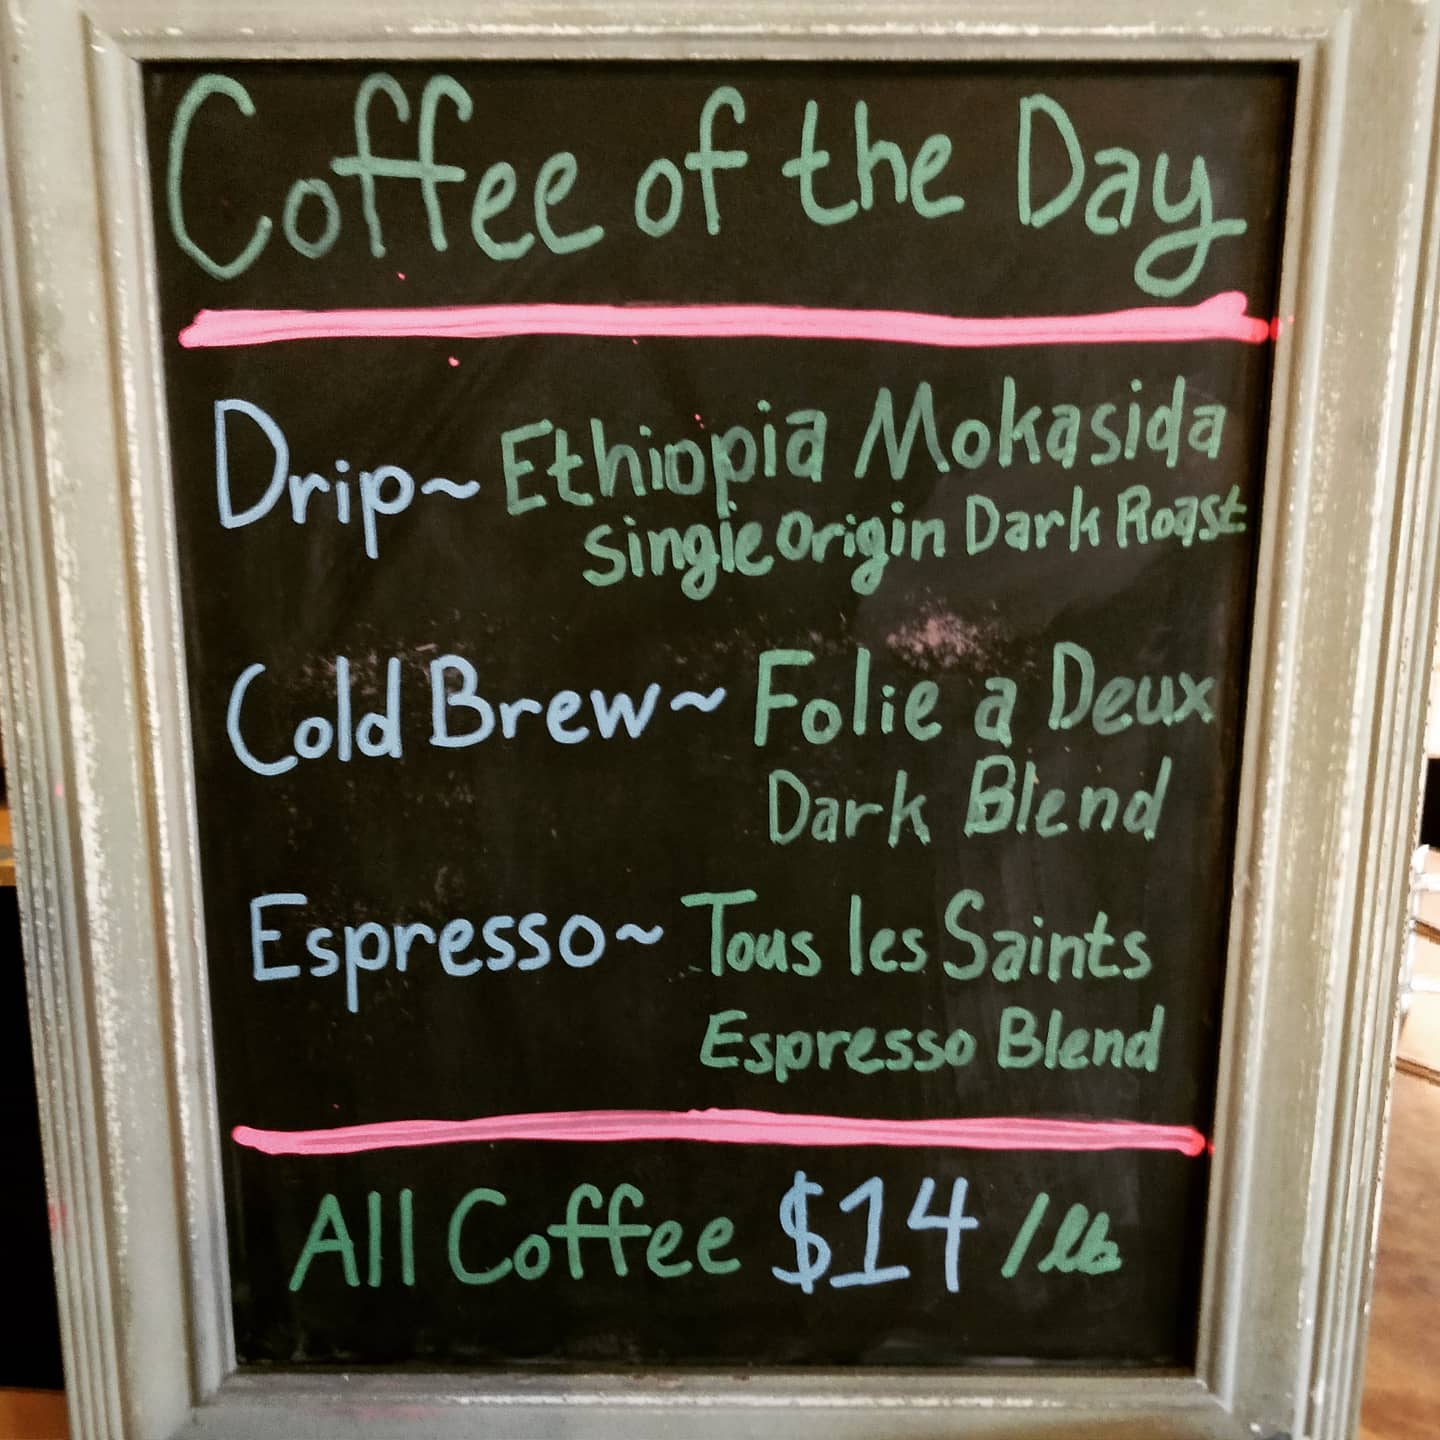 Coffee of the Day
Drip~ Ethiopia Mokasida
Single Origin Dark Roast
Cold Brew~ Folie a Deux
Dark Blend
Espresso~ Tous les Saints
Espresso Blend
All Coffee $14 /lb